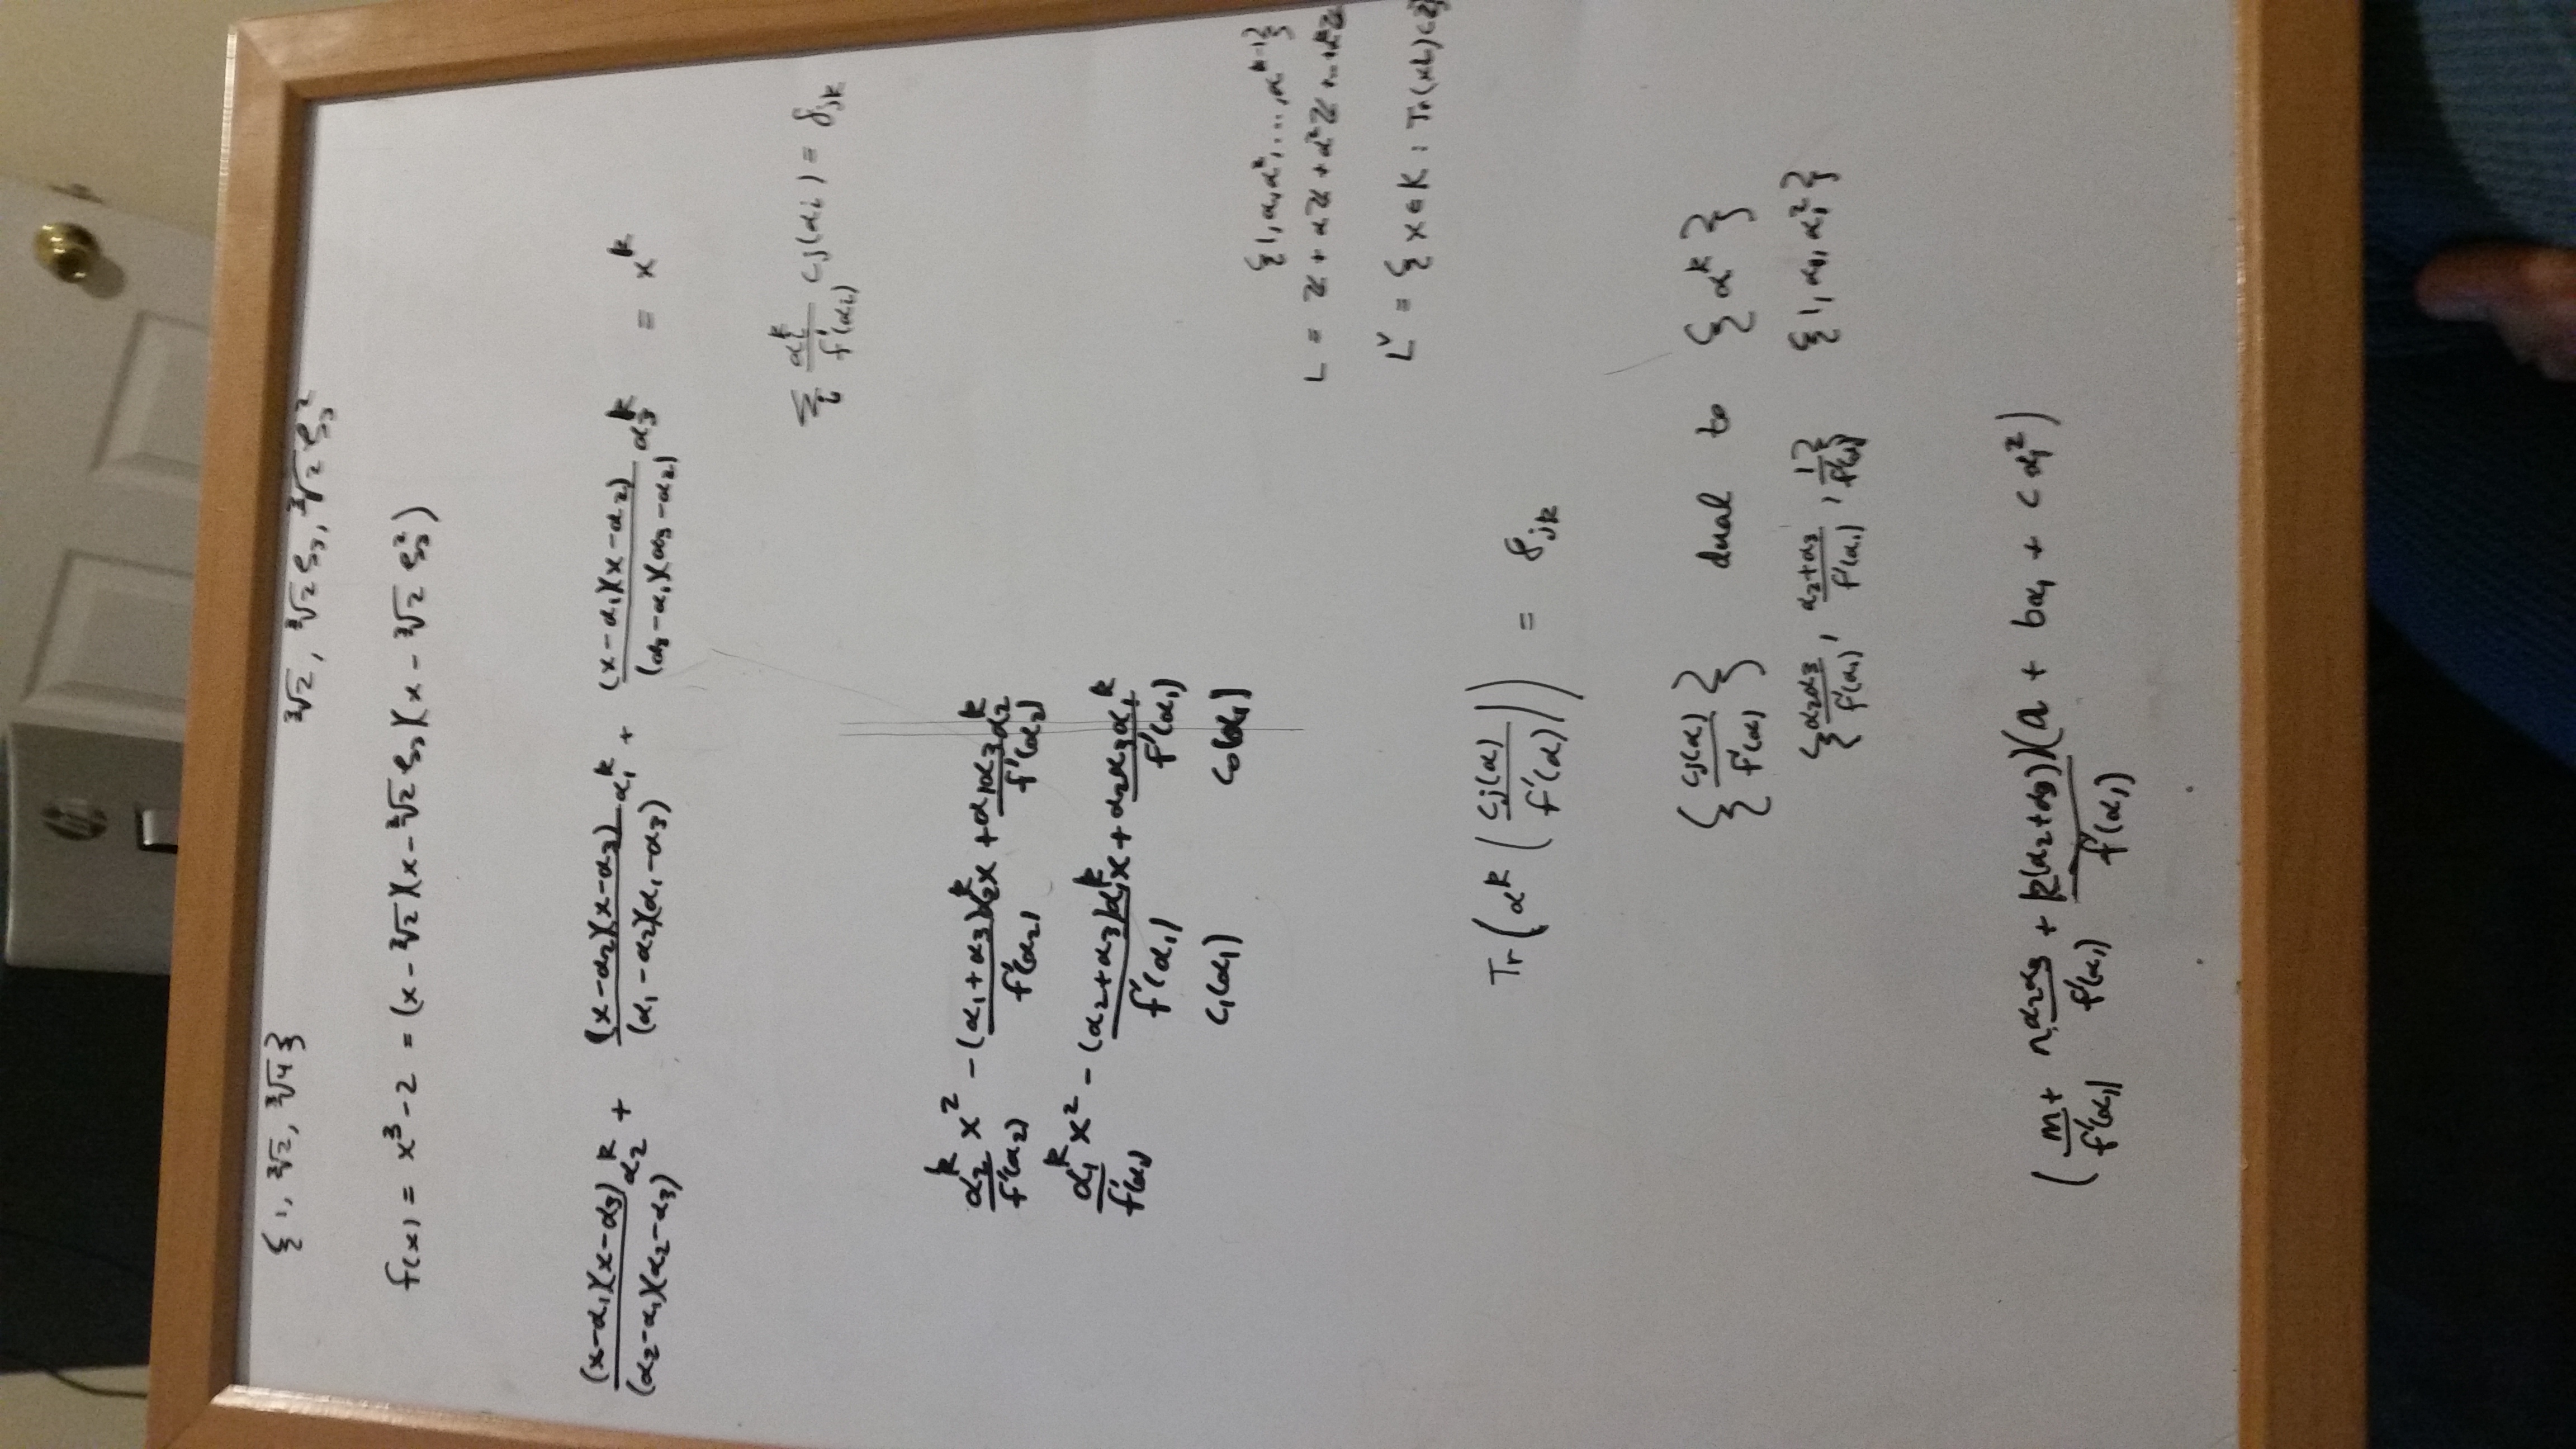 hp
{1, ∛2, ∛4}    ∛2, ∛2 ζ₃, ∛2 ζ₃²
f(x) = x³ - 2 = (x - ∛2)(x - ∛2 ζ₃)(x - ∛2 ζ₃²)
(x-α₁)(x-α₃)/(α₂-α₁)(α₂-α₃) α₂^k + (x-α₂)(x-α₃)/(α₁-α₂)(α₁-α₃) α₁^k + (x-α₁)(x-α₂)/(α₃-α₁)(α₃-α₂) α₃^k = x^k
Σ_i α_i^k/f'(α_i) c_j(α_i) = δ_jk
α₂^k/f'(α₂) x² - (α₁+α₃)α₂^k x/f'(α₂) + α₁α₃α₂^k/f'(α₂)
α₁^k/f'(α₁) x² - (α₂+α₃)α₁^k x/f'(α₁) + α₂α₃α₁^k/f'(α₁)
c₁(α₁)    c₀(α₁)
{1, α, α², ..., α^(k-1)}
L = ℤ + αℤ + α²ℤ + ... + α^kℤ
L^∨ = {x ∈ K : Tr(xL) ⊂ ℤ}
Tr(α^k (c_j(α)/f'(α))) = δ_jk
{c_j(α)/f'(α)} dual to {α^k}
{α₂α₃/f'(α₁), α₂+α₃/f'(α₁), 1/f'(α₁)}    {1, α₁, α₁²}
(m/f'(α₁) + n α₂α₃/f'(α₁) + k(α₂+α₃)/f'(α₁))(a + bα₁ + cα₁²)